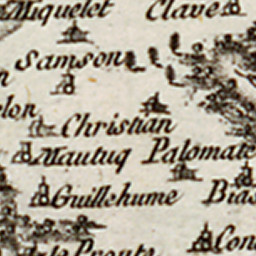 Miquelet Clave
Samson
Christian
Mautuq Palomate
Guillehume Bias
Con